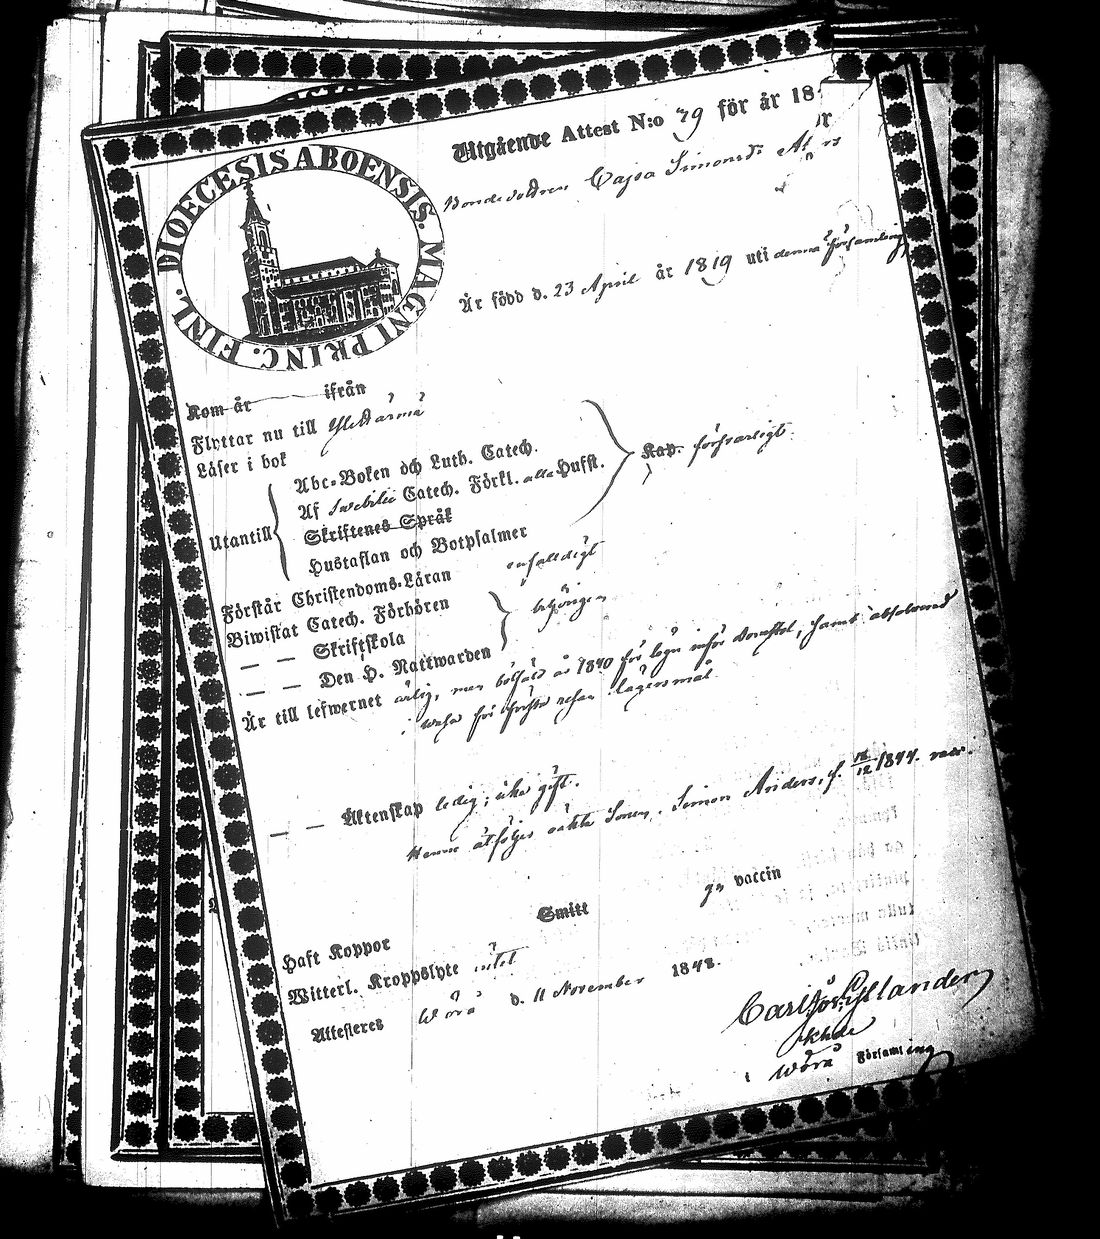 DIOECESIS ABOENSIS. MAGNI PRINC. FINL.
Utgående Attest N:o 79 för år 18
Bondedottren Cajsa Simonsdr
Är född d. 23 April år 1819 uti denna församling
Kom år ifrån
Flyttar nu till Ylihärmä
Läser i bok
Abc-Boken och Luth. Catech.
Utantill
Af Svebelii Catech. Förkl. alla Hufst.
Kap. försvarligt
Skriftenes Språk
Hustaflan och Botpsalmer
Förstår Christendoms-Läran enfaldigt
Biwistat Catech. Förhören
— — Skriftskola behörigen
— — Den H. Nattwarden
Är till lefwernet ärlig, men bötfäld år 1840 för inför domstol, samt absolverad
för första resan lägersmål
— — Äktenskap ledig; icke gift.
Henne åtföljer oäkta Sonen, Simon Anders, f. 12/1844. vacc.
Haft Koppor Smitt gn vaccin
Witterl. Kroppslyte intet
Attesteres Wörå d. 11 November 1848.
Carl
Khde
i Wörå Församling